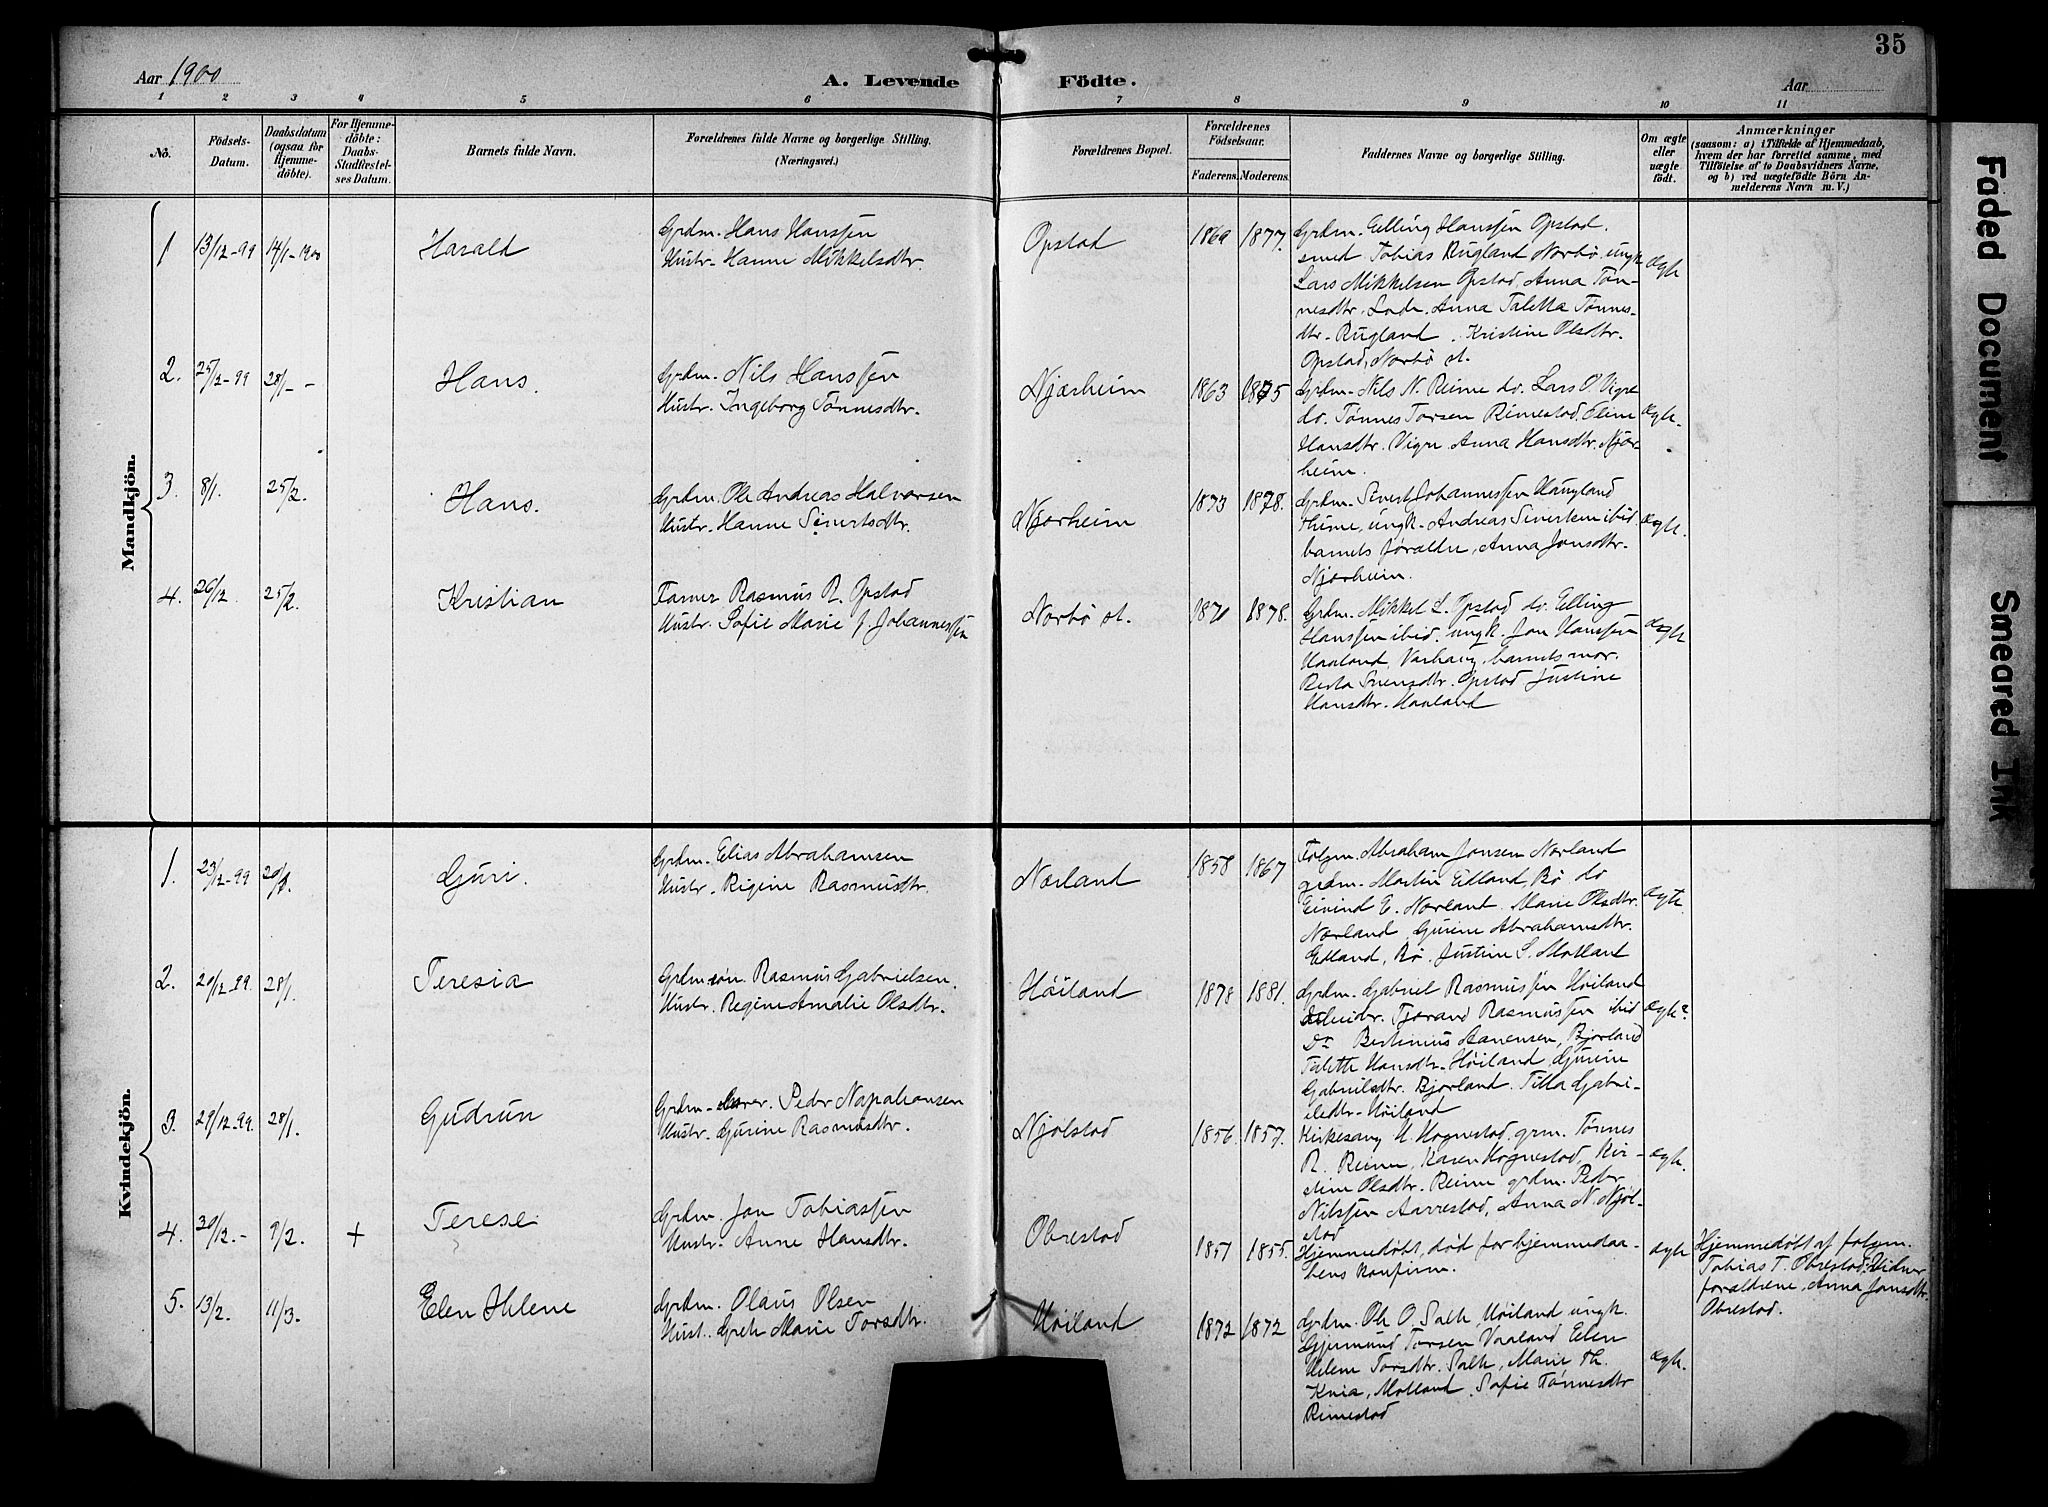 35
Aar 1900
A. Levende Födte.
Aar
1 2 3 4 5 6 7 8 9 10 11
Nō.
Födsels-Datum.
Daabsdatum (ogsaa for Hjemme-döbte).
For Hjemme-döbte: Daabs-Stadfæstel-ses Datum.
Barnets fulde Navn.
Forældrenes fulde Navne og borgerlige Stilling. (Næringsvei.)
Forældrenes Bopæl.
Forældrenes Födselsaar.
Faderens. Moderens.
Faddernes Navne og borgerlige Stilling.
Om ægte eller uægte födt.
Anmærkninger
(saasom: a) i Tilfælde af Hjemmedaab, hvem der har forrettet samme, med Tilföielse af to Daabsvidners Navne, og b) ved uægtefödte Börn An-melderens Navn m. V.)
Mandkjön.
1 13/12-99 14/1-1900 Harald
Grdm. Hans Hanssen
Hustr. Hanne Mikkelsdtr.
Opstad 1869 1877.
Grdm. Elling Hanssen Opstad.
smed Tobias Rugland Norbö, ungk
Lars Mikkelsen Opstad, Anna Tön-
nesdtr. Lode. Anna Taletta Tönnes-
dtr. Rugland. Kristine Olsdtr.
Opstad, Norbö st.
ægte
2. 25/12-99 28/1 - Hans.
Grdm. Nils Hanssen
Hustr. Ingeborg Tönnesdtr.
Njærheim 1863 1875
Grdm. Nils N. Reime do. Lars O. Vigre
do. Tönnes Torsen Rimestad. Eline
Hansdtr. Vigre Anna Hansdtr. Njær-
heim.
ægte.
3. 8/1. 25/2. Hans.
Grdm. Ole Andreas Halvorsen
Hustr. Hanne Sivertsdtr.
Njærheim 1873 1878.
Grdm. Sivert Johannessen Haugland
Thime, ungk. Andreas Sivertsen ibid
barnets forældre, Anna Jonsdtr.
Njærheim.
ægte.
4. 26/12. 25/2. Kristian
Farver Rasmus R. Opstad
Hustr. Sofie Marie f. Johannessen
Norbö st. 1870 1878.
Grdm. Mikkel L. Opstad do. Elling
Hanssen ibid. ungk. Jon Hanssen
Haaland, Varhaug, barnets mor.
Berta Svensdtr. Opstad Justine
Hansdtr. Haaland
ægte
Kvindekjön.
1. 23/12-99 20/1. Gjuri.
Grdm. Elias Abrahamsen
Hustr. Rigine Rasmusdtr.
Nærland 1858 1867
Folgm. Abraham Jonsen Nærland
grdm. Martin Edland, Bö do
Eivind E. Nærland. Marie Olsdtr.
Nærland, Gjurine Abrahamsdtr.
Edland, Bö. Justine S. Motland
ægte.
2. 20/12-99. 28/1. Teresia
Grdmsön Rasmus Gabrielsen.
Hustr. Regine Amalie Olsdtr.
Höiland 1878 1881.
Grdm. Gabriel Rasmussen Höiland
Tjærand Rasmussen ibid
Do Bertinius Aanensen, Bjorland
Talette Hansdtr. Höiland Gjurine
Gabrielsdtr. Bjorland. Tilla Gabri-
elsdtr. Höiland
ægte
3. 29/12-99. 28/1. Gudrun
Grdm. Peder Napahansen
Hustr. Gjurine Rasmusdtr.
Njölstad 1856 1857.
Kirkesang. H. Hognestad, grm. Tönnes
R. Reime, Karen Hognestad, Kir-
stine Olsdtr. Reime grdm. Peder
Nilssen Aarrestad, Anna N. Njöl-
stad
ægte.
4. 30/12.- 9/2. + Terese
Grdm. Jon Tobiassen
Hustr. Anne Hansdtr.
Obrestad 1851 1855.
Hjemmedöbt, död før hjemmedaa-
bens konfirm.
ægte
Hjemmedöbt af folgm.
Tobias T. Obrestad. Vidner
forældrene, Anna Jonsdtr.
Obrestad.
5. 13/2. 11/3. Elen Helene
Grdm. Olaus Olsen
Hust. Grete Marie Torsdtr.
Höiland 1872 1872
Grdm. Ole O. Salte, Höiland ungk.
Gjermund Torsen Vaaland Elen
Helene Torsdtr. Salte, Marie Th.
Kvia, Motland. Sofie Tönnesdtr
Rimestad
ægte.
Faded Document
Smeared Ink